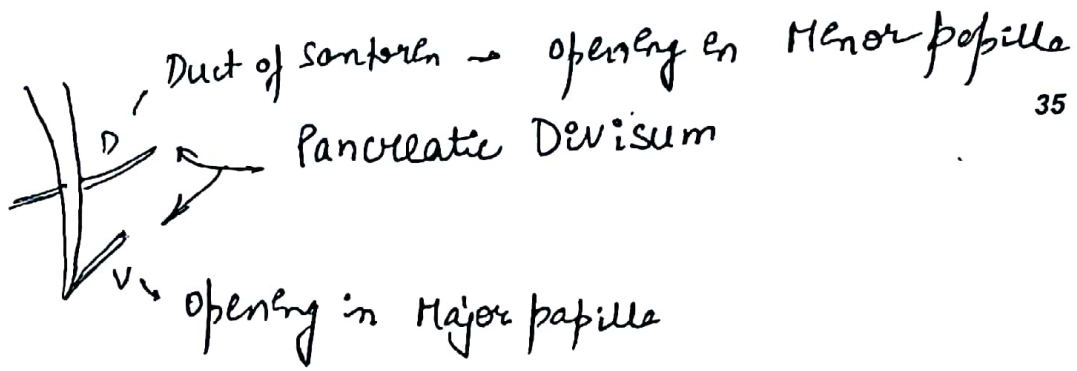 Duct of Santorin → opening in Minor papilla
35
D
Pancreatic Divisum
V
opening in Major papilla